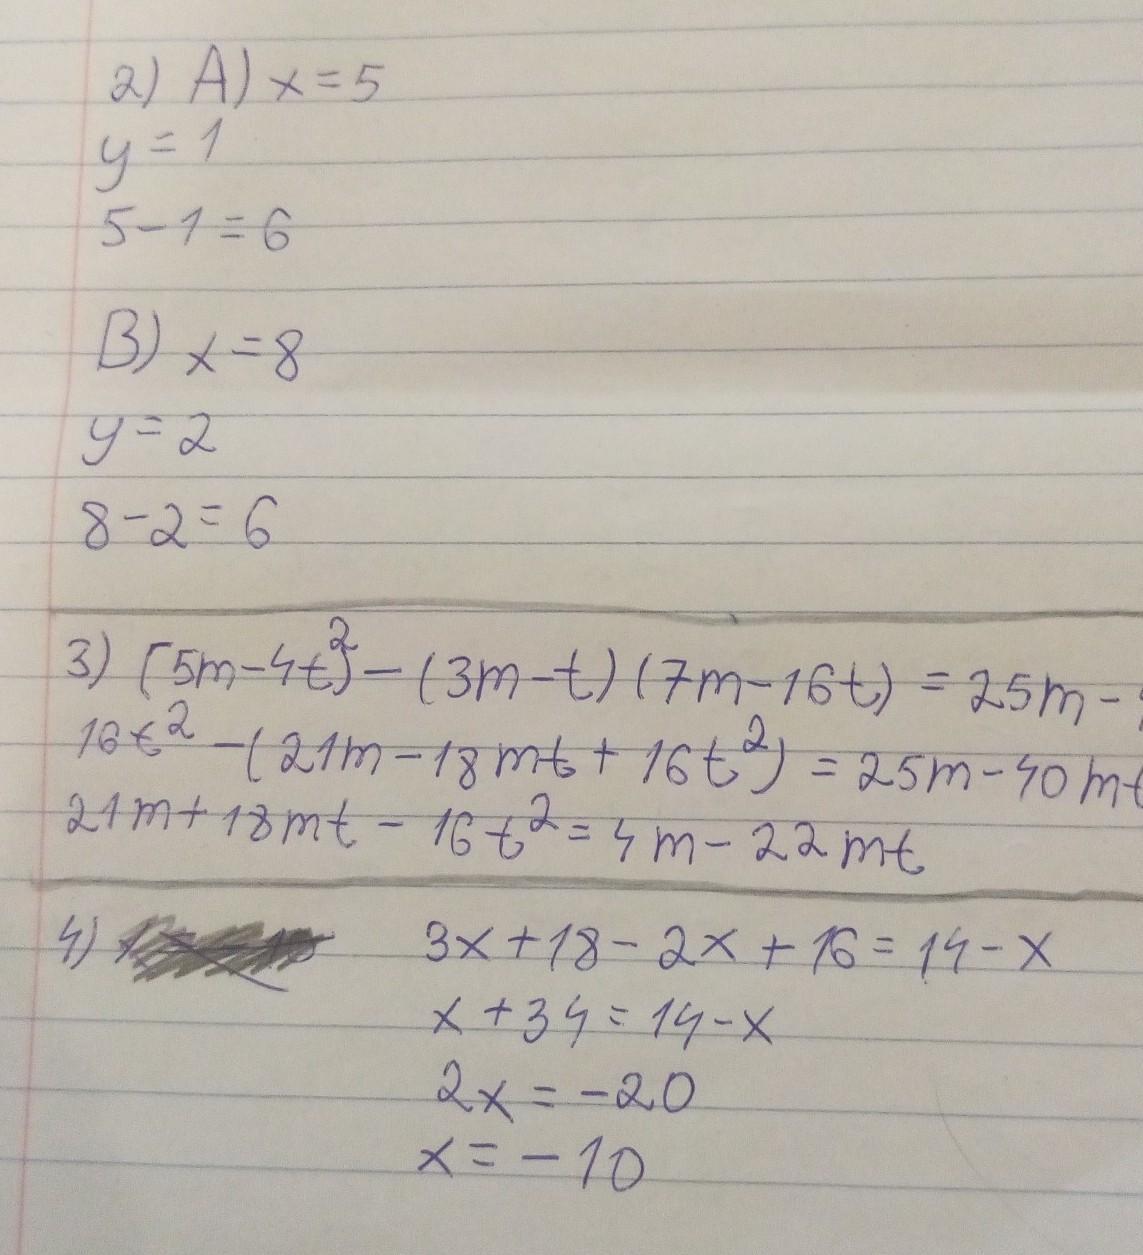 2) A) x=5
y=1
5-1=6
B) x=8
y=2
8-2=6
3) (5m-4t)²-(3m-t)(7m-16t)=25m-
16t²-(21m-18mt+16t²)=25m-40mt
21m+18mt-16t²=4m-22mt
4) 3x+18-2x+16=14-x
x+34=14-x
2x=-20
x=-10